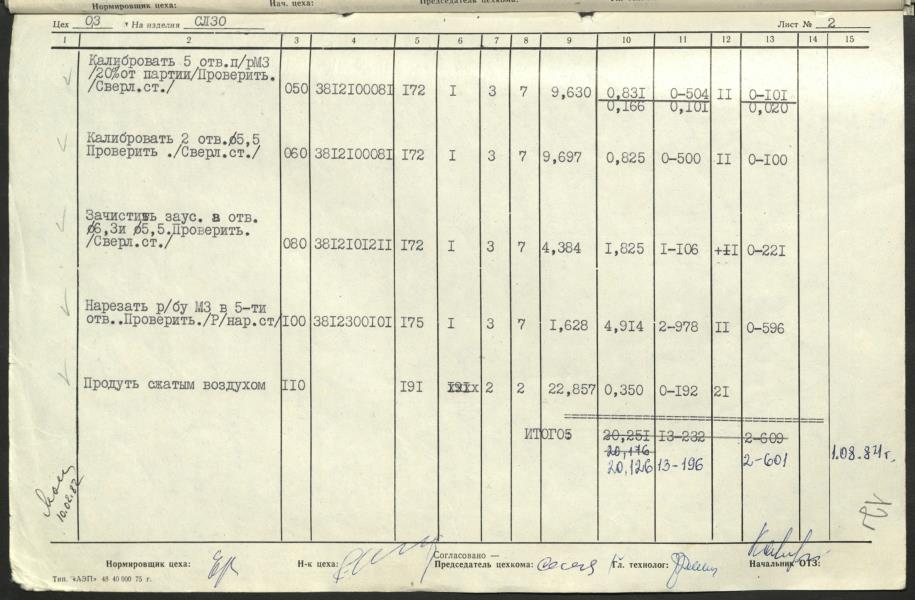 Нормировщик цеха: Нач. цеха: Председатель цехкома:
Цех 03 На изделия СЛ30 Лист № 2
1 2 3 4 5 6 7 8 9 10 11 12 13 14 15
Калибровать 5 отв.п/рМ3
/20%от партии/Проверить.
/Сверл.ст./ 050 3812I0008I I72 I 3 7 9,630 0,83I 0-504 II 0-I0I
0,166 0,I0I 0,020
Калибровать 2 отв.ø5,5
Проверить ./Сверл.ст./ 060 3812I0008I I72 I 3 7 9,697 0,825 0-500 II 0-I00
Зачистить заус. в отв.
ø6,3и ø5,5.Проверить.
/Сверл.ст./ 080 38I2I0I2II I72 I 3 7 4,384 I,825 I-I06 +II 0-22I
Нарезать р/бу М3 в 5-ти
отв..Проверить./Р/нар.ст/ I00 38I2300I0I I75 I 3 7 I,628 4,9I4 2-978 II 0-596
Продуть сжатым воздухом II0 I9I 2 2 22,857 0,350 0-I92 2I
ИТОГО: 20,25I I3-232 2-609
20,176
20,126 13-196 2-601 1.08.84г.
10.02.82
Согласовано —
Нормировщик цеха: Н-к цеха: Председатель цехкома: Гл. технолог: Начальник ОТЗ:
Тип. «АЭП» 48 40 000 75 г.